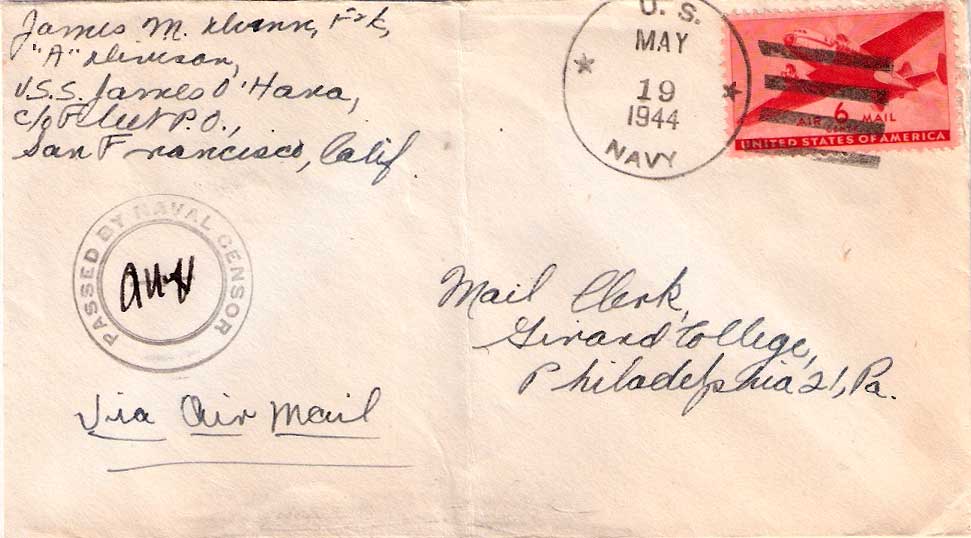 James M. Dunn, F2/c,
"A" Division,
U.S.S. James O'Hara,
c/o Fleet P.O.,
San Francisco, Calif.
U. S.
MAY
19
1944
NAVY
AIR 6 MAIL
CENTS
UNITED STATES OF AMERICA
PASSED BY NAVAL CENSOR
Mail Clerk,
Girard College,
Philadelphia 21, Pa.
Via Air Mail